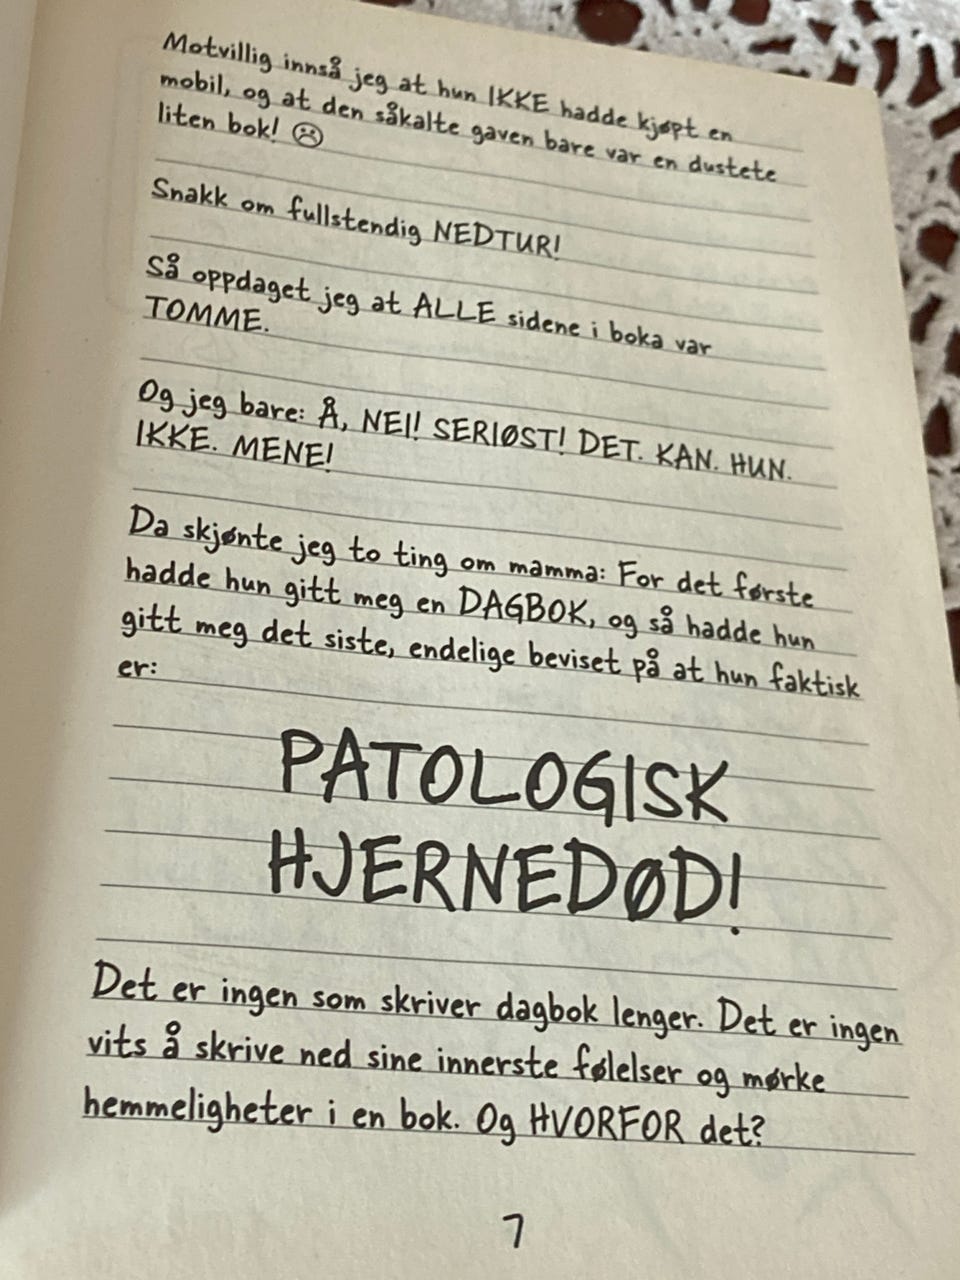 Motvillig innså jeg at hun IKKE hadde kjøpt en
mobil, og at den såkalte gaven bare var en dustete
liten bok! ☹
Snakk om fullstendig NEDTUR!
Så oppdaget jeg at ALLE sidene i boka var
TOMME.
Og jeg bare: Å, NEI! SERIØST! DET. KAN. HUN.
IKKE. MENE!
Da skjønte jeg to ting om mamma: For det første
hadde hun gitt meg en DAGBOK, og så hadde hun
gitt meg det siste, endelige beviset på at hun faktisk
er:
PATOLOGISK
HJERNEDØD!
Det er ingen som skriver dagbok lenger. Det er ingen
vits å skrive ned sine innerste følelser og mørke
hemmeligheter i en bok. Og HVORFOR det?
7